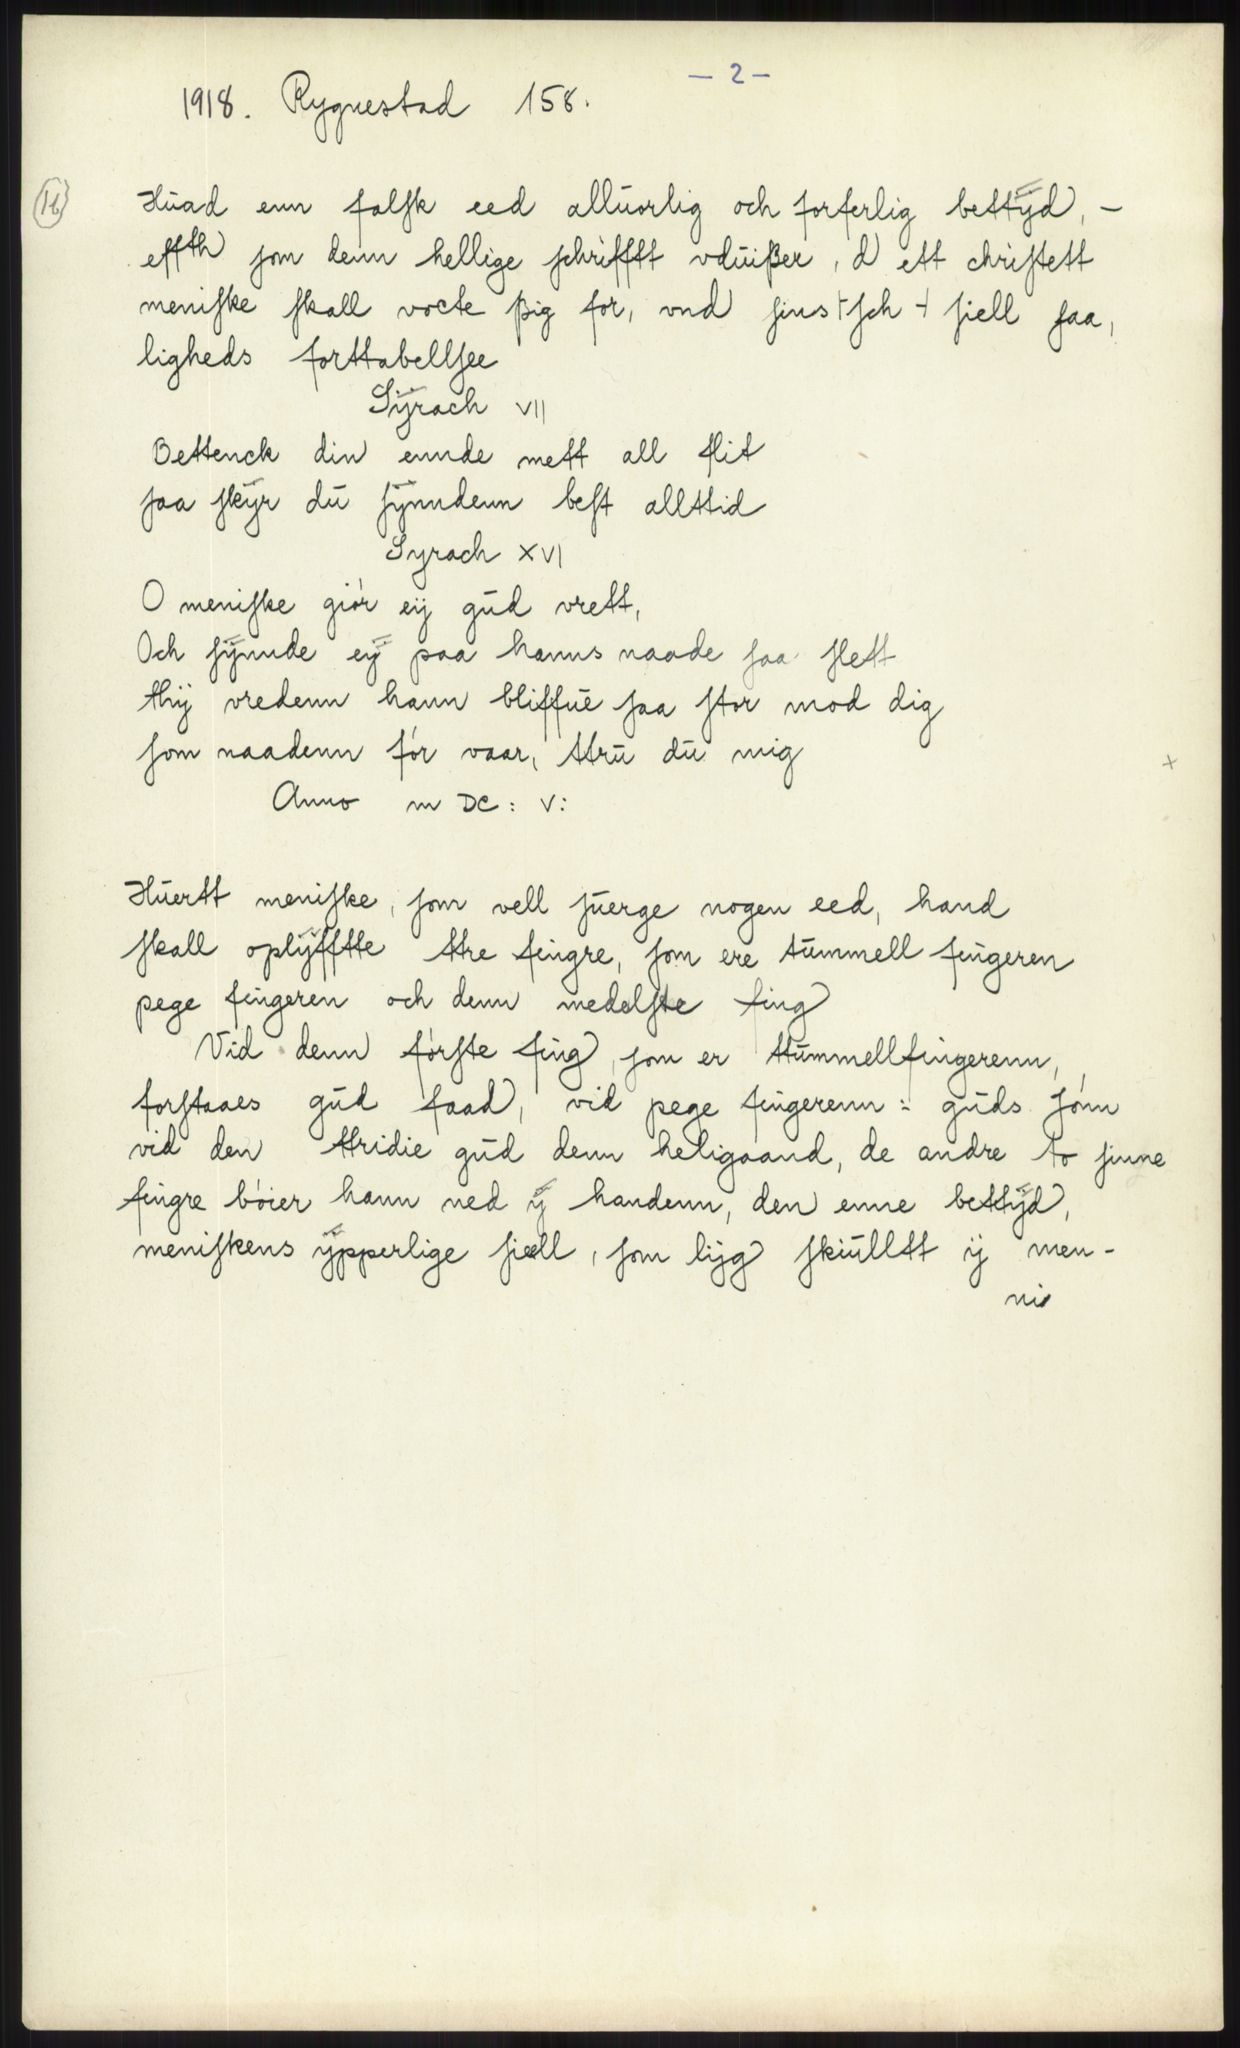 - 2 -
1918. Rygnestad 158.
16
Huad enn falsk eed alluorlig och forferlig bettÿd, -
effth som denn hellige schriffft vduißer, d ett christett
meniske skall vocte ßig for, vnd sins + sch + siell saa,
ligheds forttabellsee
Sÿrach VII
Bettenck din ennde mett all flit
saa skÿr du sÿnndenn best allttid
Syrach XVI
O meniske giór eÿ gud vrett,
Och sÿnnde eÿ paa hanns naade saa slett
thÿ vredenn hann bliffue saa stor mod dig
som naadenn fór vaar, ttru du mig
+
Anno m DC : V :
Huertt meniske, som vell suerge nogen eed, hand
skall oplÿfftte ttre fingre, som ere tummell fingeren
pege fingeren och denn medelste fing
Vid denn fórste fing, som er ttummellfingerenn,
forstaaes gud faad, vid pege fingerenn : guds sónn
vid den ttridie gud denn heligaand, de andre to sinne
fingre bóier hann ned ÿ handenn, den enne bettÿd,
meniskens ÿpperlige siell, som lÿg skiulltt ÿ men-
nis